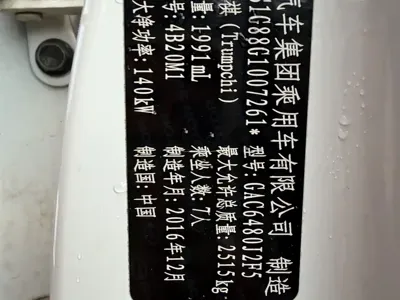 汽车集团乘用车有限公司 制造
1G88G1007261* 型号:GAC6480J2F5
祺(Trumpchi) 最大允许总质量:2515kg
量:1991mL 乘坐人数:7人
号:4B20M1 制造年月:2016年12月
大净功率:140kW 制造国:中国